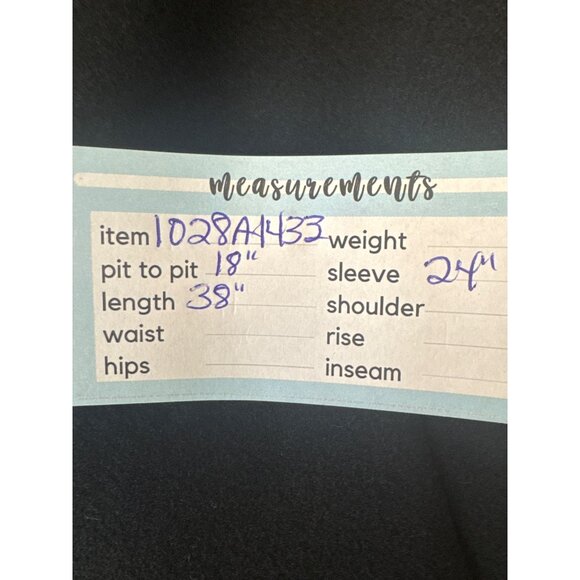 measurements
item 1028A1433 weight
pit to pit 18" sleeve 24"
length 38" shoulder
waist rise
hips inseam